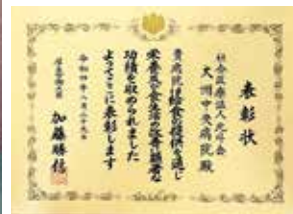 表彰状
社会医療法人北斗会
大洲中央病院殿
貴病院は給食の提供を通じ
栄養及び食生活の改善に顕著な
功績を収められました
よってここに表彰します
令和四年八月二十九日
厚生労働大臣
加藤勝信